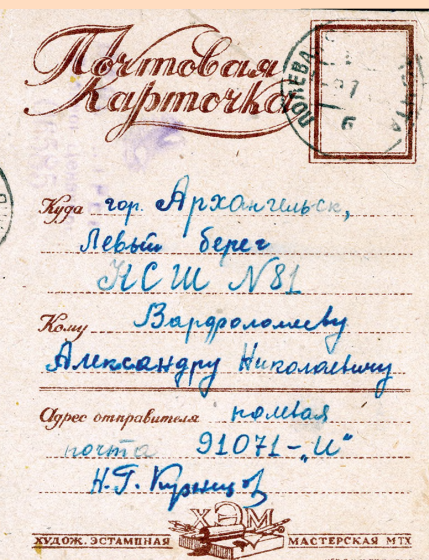 Почтовая
Карточка
ПОЛЕВАЯ ПОЧТА
Куда гор. Архангельск,
Левый берег
НСШ N81
Кому Варфоломееву
Александру Николаевичу
Адрес отправителя полевая
почта 91071-„И"
Н.Г. Кузнецов
ХЭМ
ХУДОЖ. ЭСТАМПНАЯ МАСТЕРСКАЯ МТХ